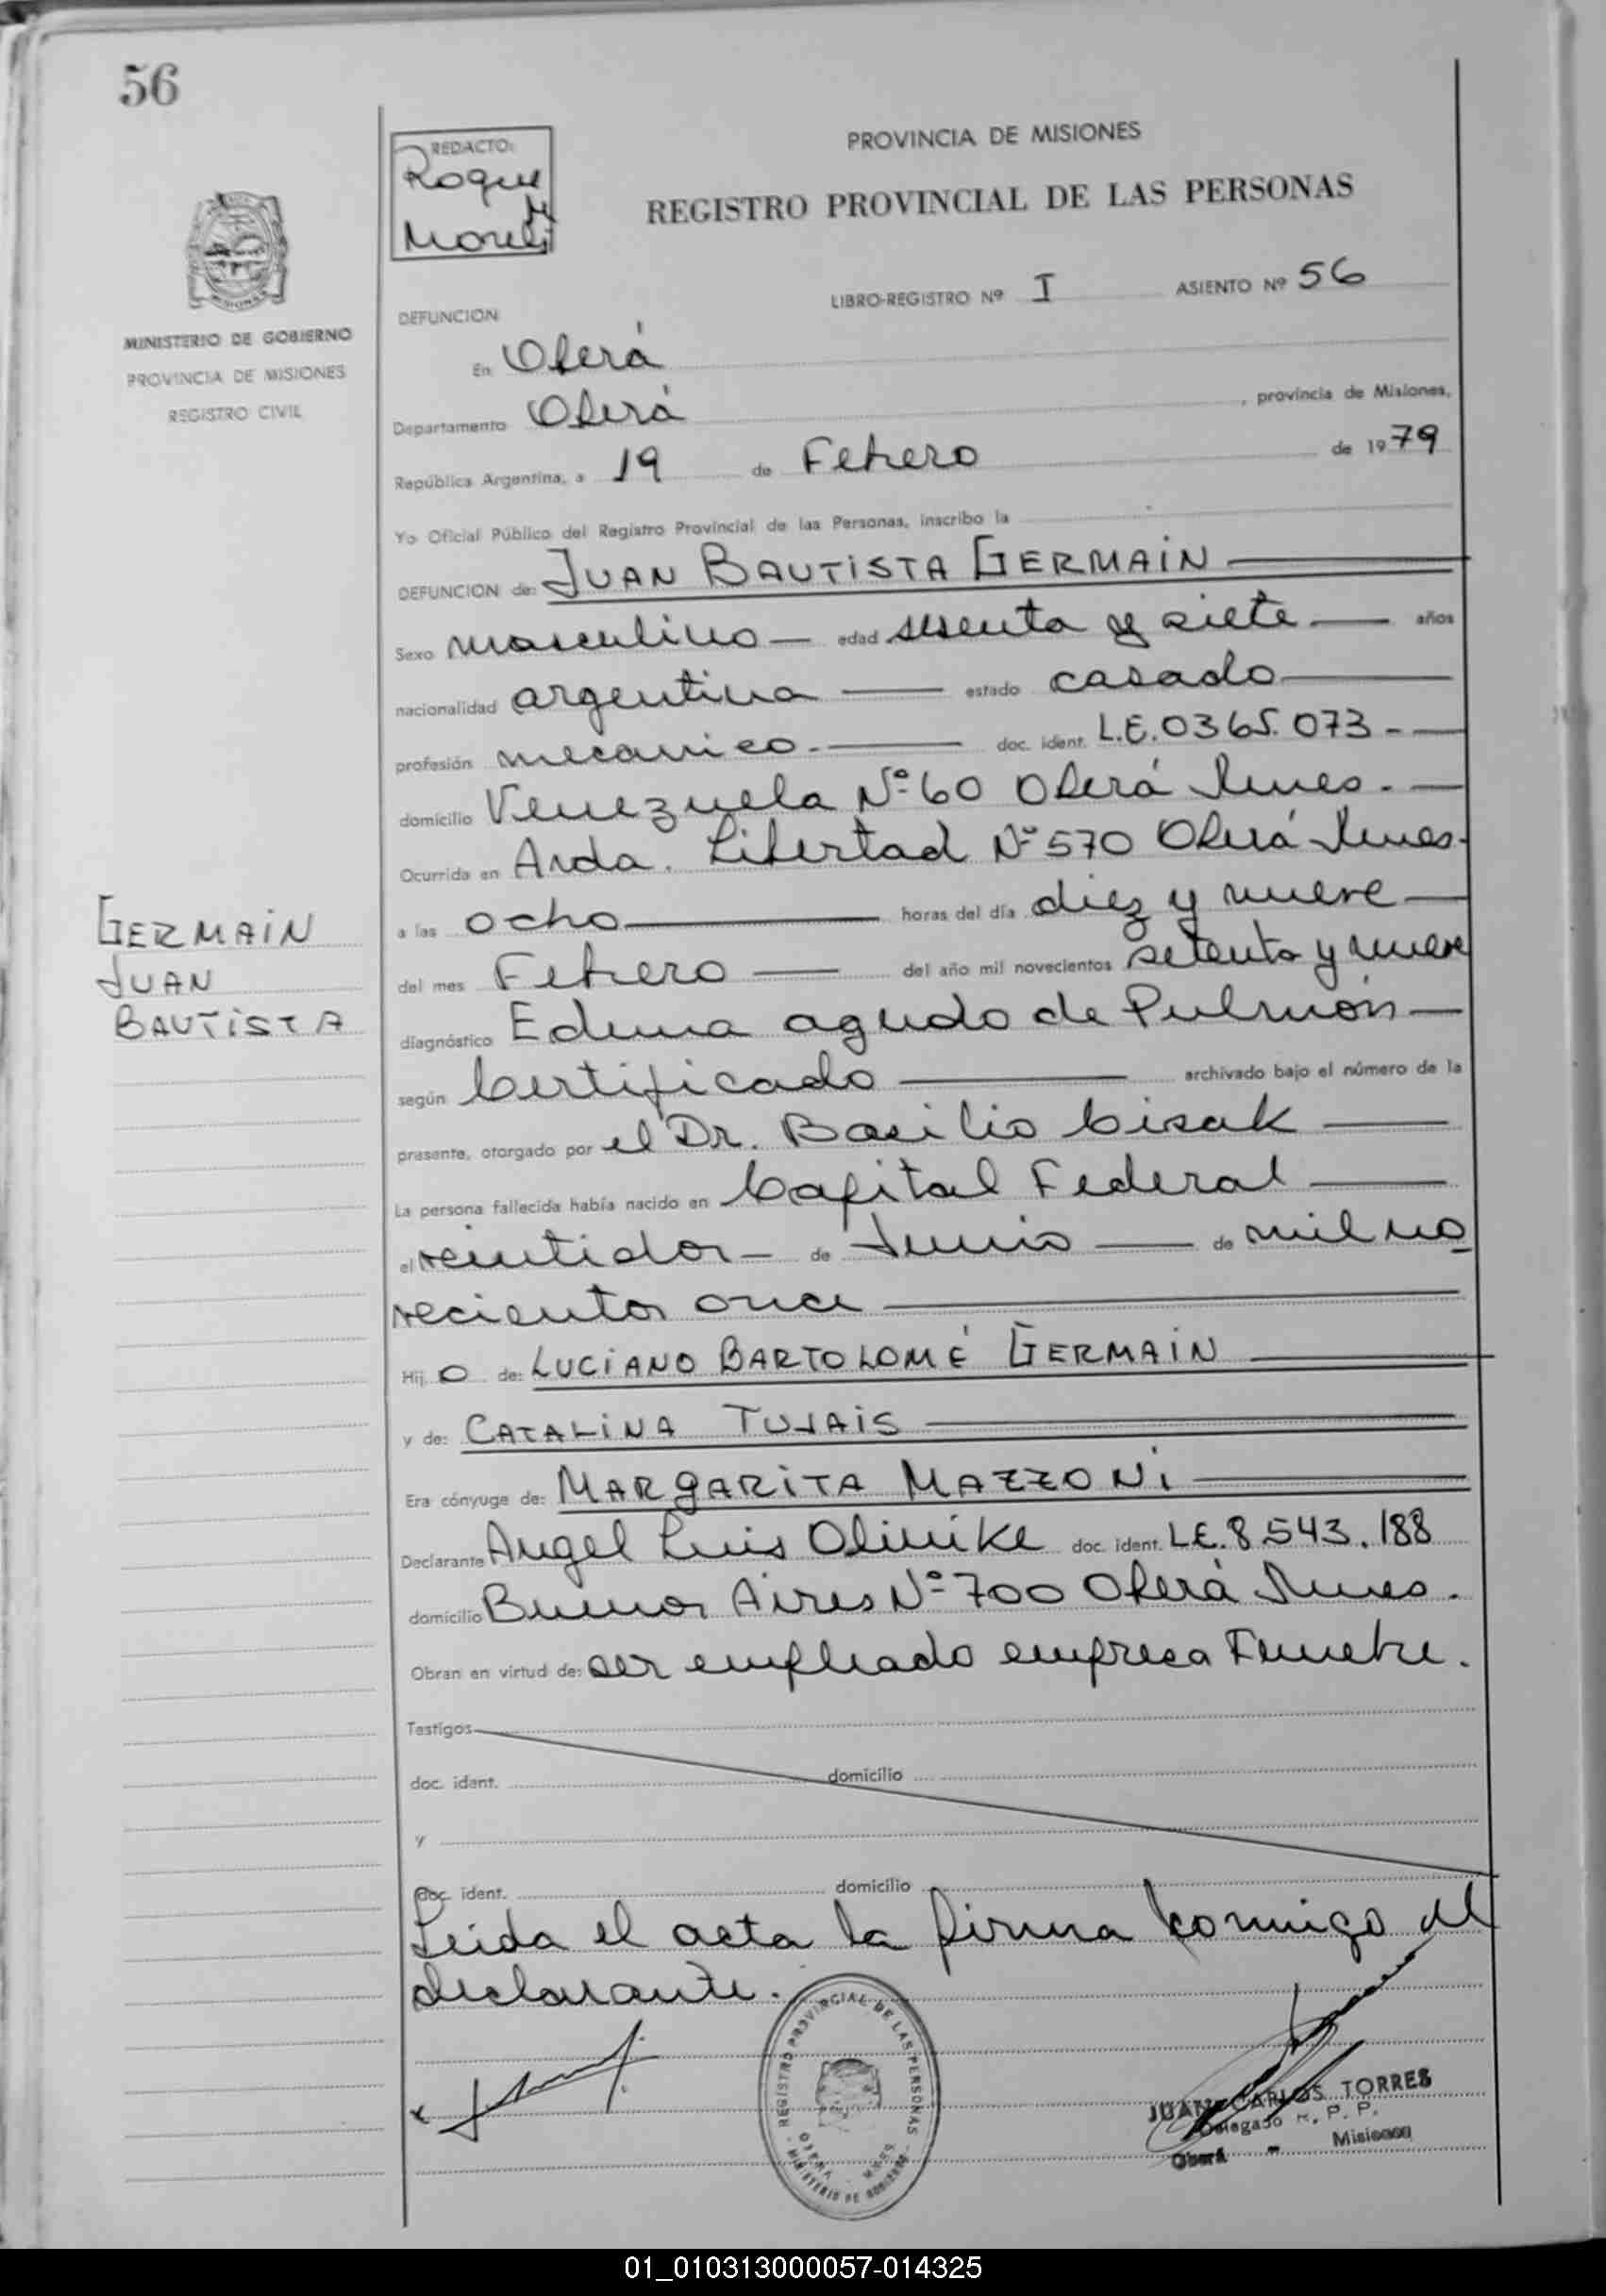 56
REDACTO:
Roque
M
Morel
PROVINCIA DE MISIONES
REGISTRO PROVINCIAL DE LAS PERSONAS
MISIONES
MINISTERIO DE GOBIERNO
PROVINCIA DE MISIONES
REGISTRO CIVIL
LIBRO-REGISTRO Nº I ASIENTO Nº 56
DEFUNCION
En Oberá
Departamento Oberá, provincia de Misiones,
República Argentina, a 19 de Febrero de 1979
Yo Oficial Público del Registro Provincial de las Personas, inscribo la
DEFUNCION de: JUAN BAUTISTA GERMAIN
Sexo masculino edad sesenta y siete años
nacionalidad argentina estado casado
profesión mecanico. doc. ident. L.E. 0365.073 -
domicilio Venezuela Nº 60 Oberá Mnes.
Ocurrida en Avda. Libertad Nº 570 Oberá Mnes.
a las ocho horas del día diez y nueve
del mes Febrero del año mil novecientos setenta y nueve
diagnóstico Edema agudo de Pulmón
según Certificado archivado bajo el número de la
presente, otorgado por el Dr. Basilio Cisak
La persona fallecida había nacido en Capital Federal
el veintidos de Junio de mil no
vecientos once
Hijo de: LUCIANO BARTOLOMÉ GERMAIN
y de: CATALINA TUJAIS
Era cónyuge de: MARGARITA MAZZONI
Declarante Angel Luis Olinike doc. ident. L.E. 8.543.188
domicilio Buenos Aires Nº 700 Oberá Mnes.
Obran en virtud de: ser empleado empresa Funebre.
Testigos
doc. ident. domicilio
y
doc. ident. domicilio
Leida el acta la firma conmigo el
declarante.
GERMAIN
JUAN
BAUTISTA
REGISTRO PROVINCIAL DE LAS PERSONAS
OBERA - MNES.
MINISTERIO DE GOBIERNO
JUAN CARLOS TORRES
Delegado R. P. P.
Oberá - Misiones
01_010313000057-014325